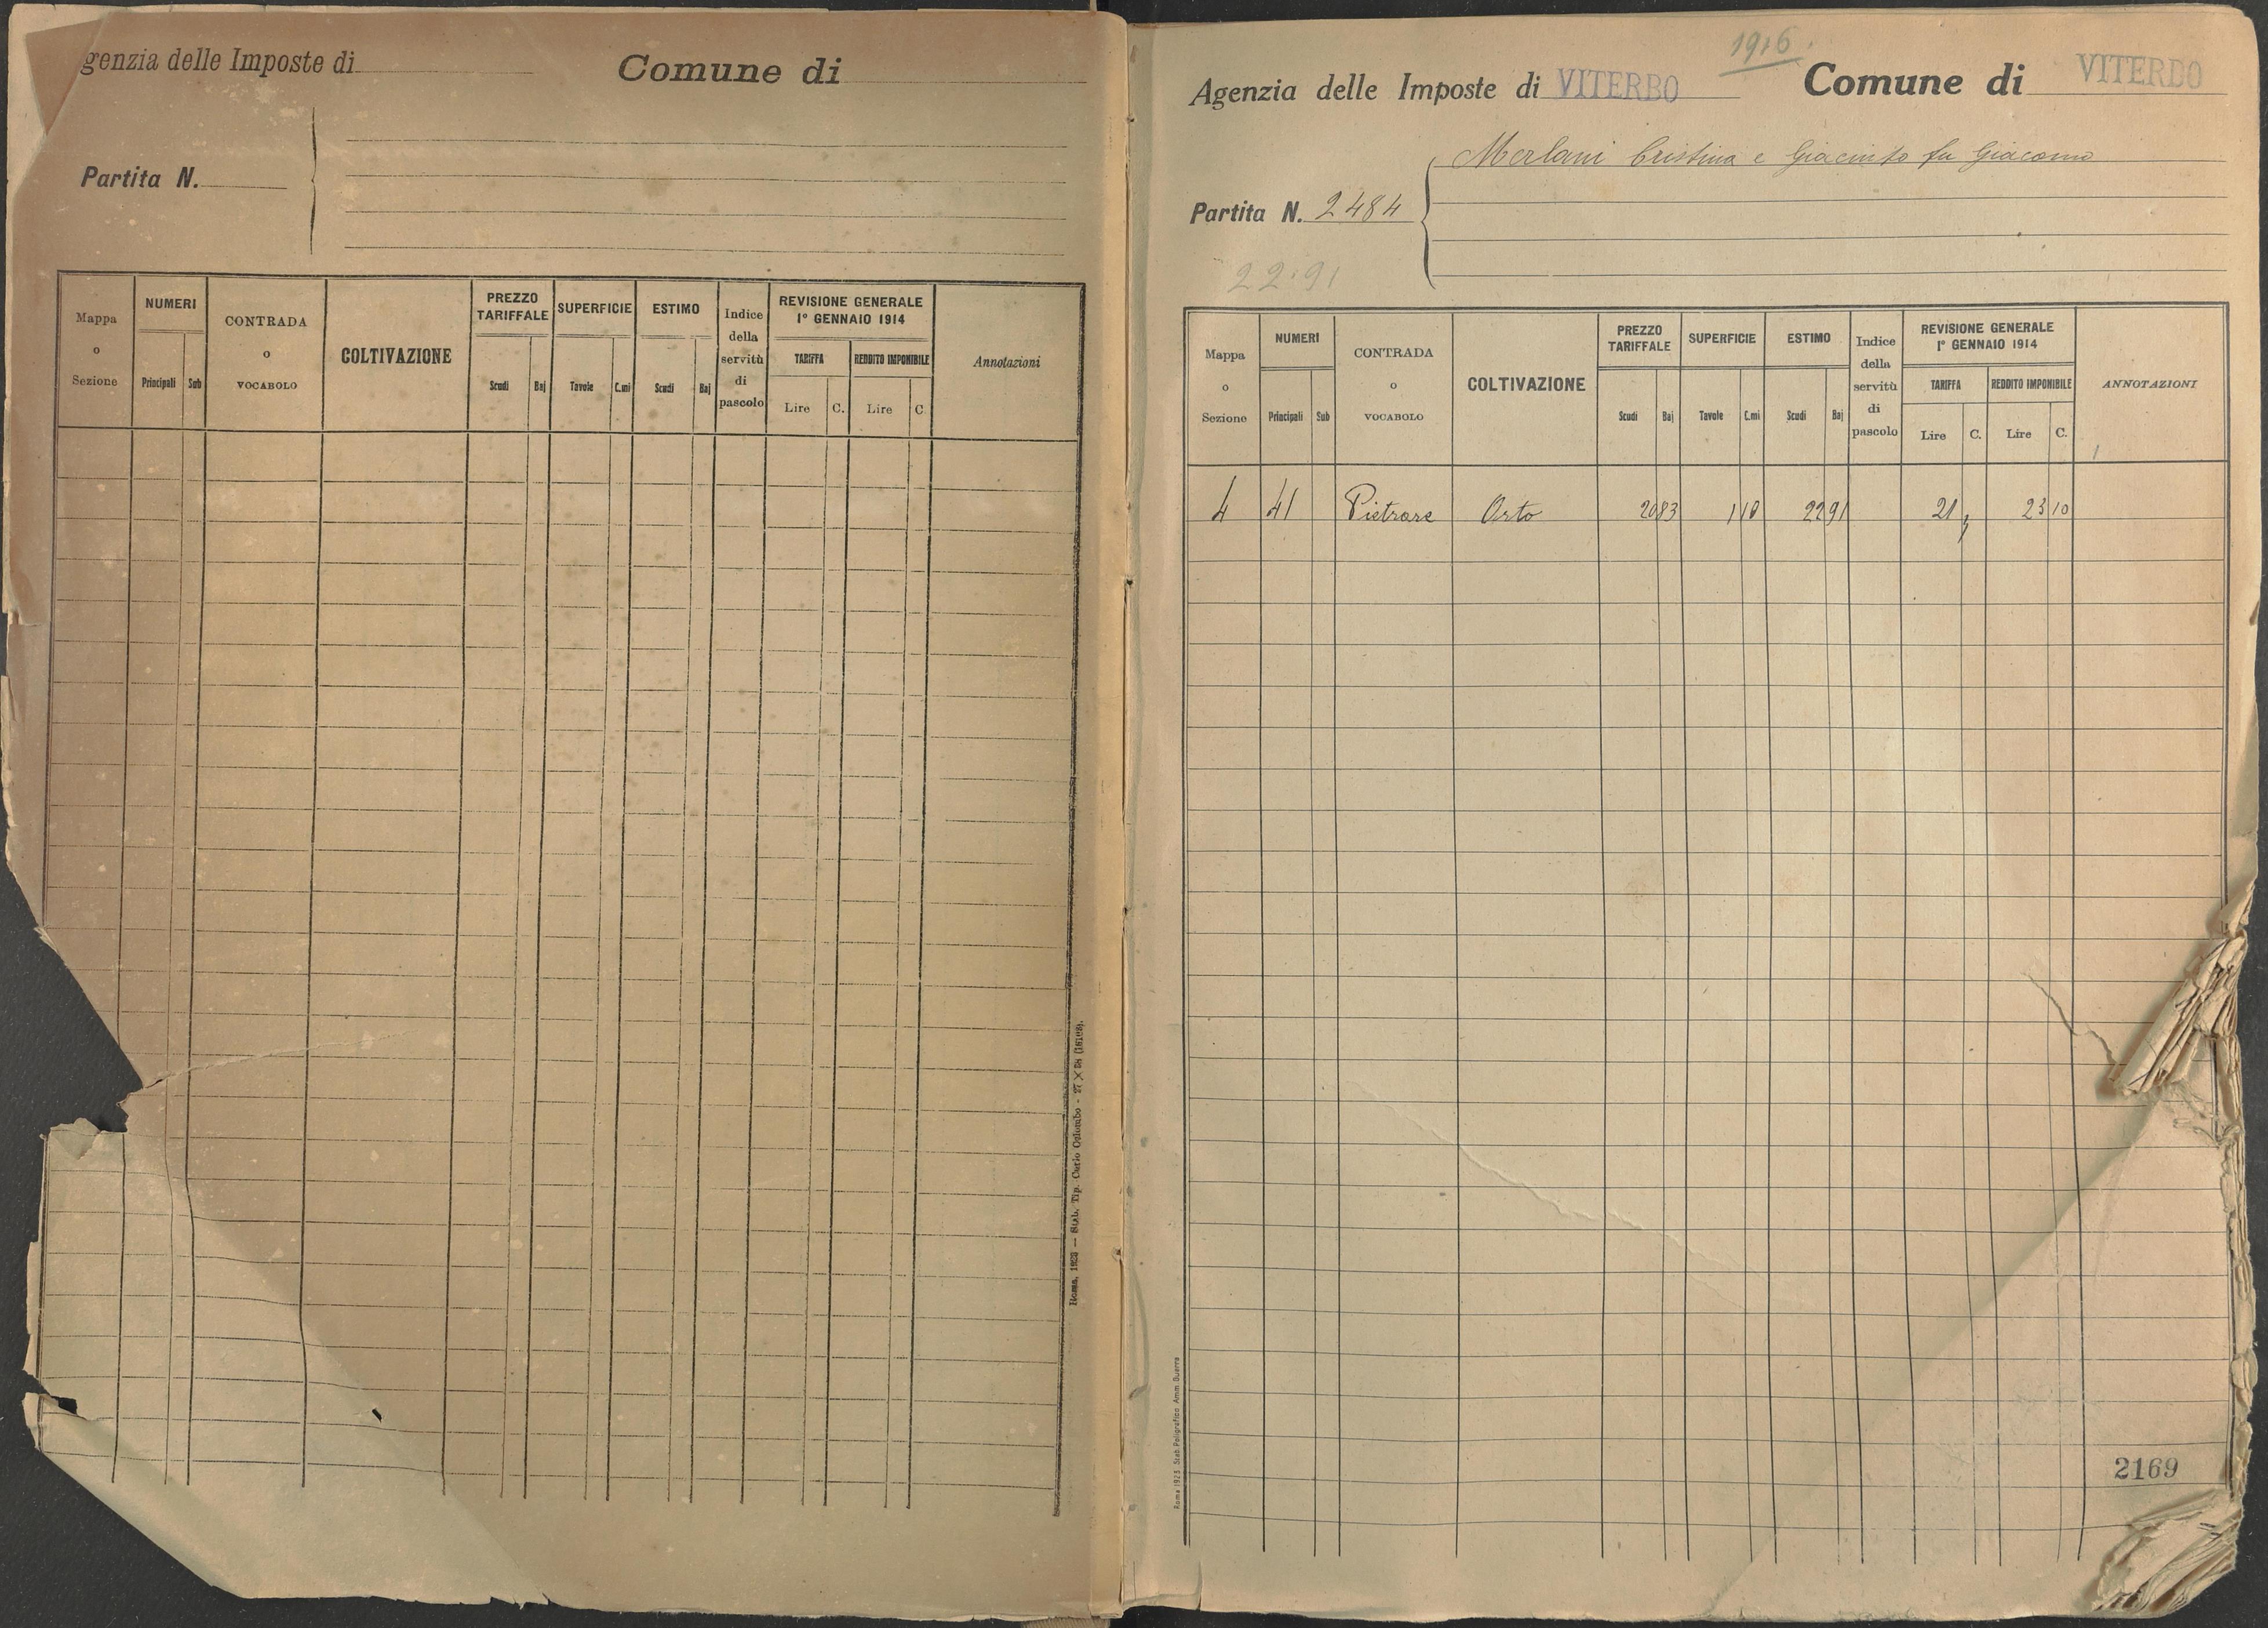 genzia delle Imposte di
Comune di
Partita N.
Mappa o Sezione
NUMERI
Principali Sub
CONTRADA o VOCABOLO
COLTIVAZIONE
PREZZO TARIFFALE
Scudi Baj
SUPERFICIE
Tavole C.mi
ESTIMO
Scudi Baj
Indice della servitù di pascolo
REVISIONE GENERALE
1° GENNAIO 1914
TARIFFA REDDITO IMPONIBILE
Lire C. Lire C
Annotazioni
Roma, 1923 — Stab. Tip. Carlo Colombo
1916
Agenzia delle Imposte di VITERBO Comune di VITERBO
Merlani Cristina e Giacinto fu Giacomo
Partita N. 2484
22.91
Mappa o Sezione
NUMERI
Principali Sub
CONTRADA o VOCABOLO
COLTIVAZIONE
PREZZO TARIFFALE
Scudi Baj
SUPERFICIE
Tavole C.mi
ESTIMO
Scudi Baj
Indice della servitù di pascolo
REVISIONE GENERALE
1° GENNAIO 1914
TARIFFA REDDITO IMPONIBILE
Lire C. Lire C.
ANNOTAZIONI
4 41 Pietrare Orto 20 83 1 10 22 91 21 , 23 10
Roma 1923 Stab. Poligrafico Amm. Guerra
2169